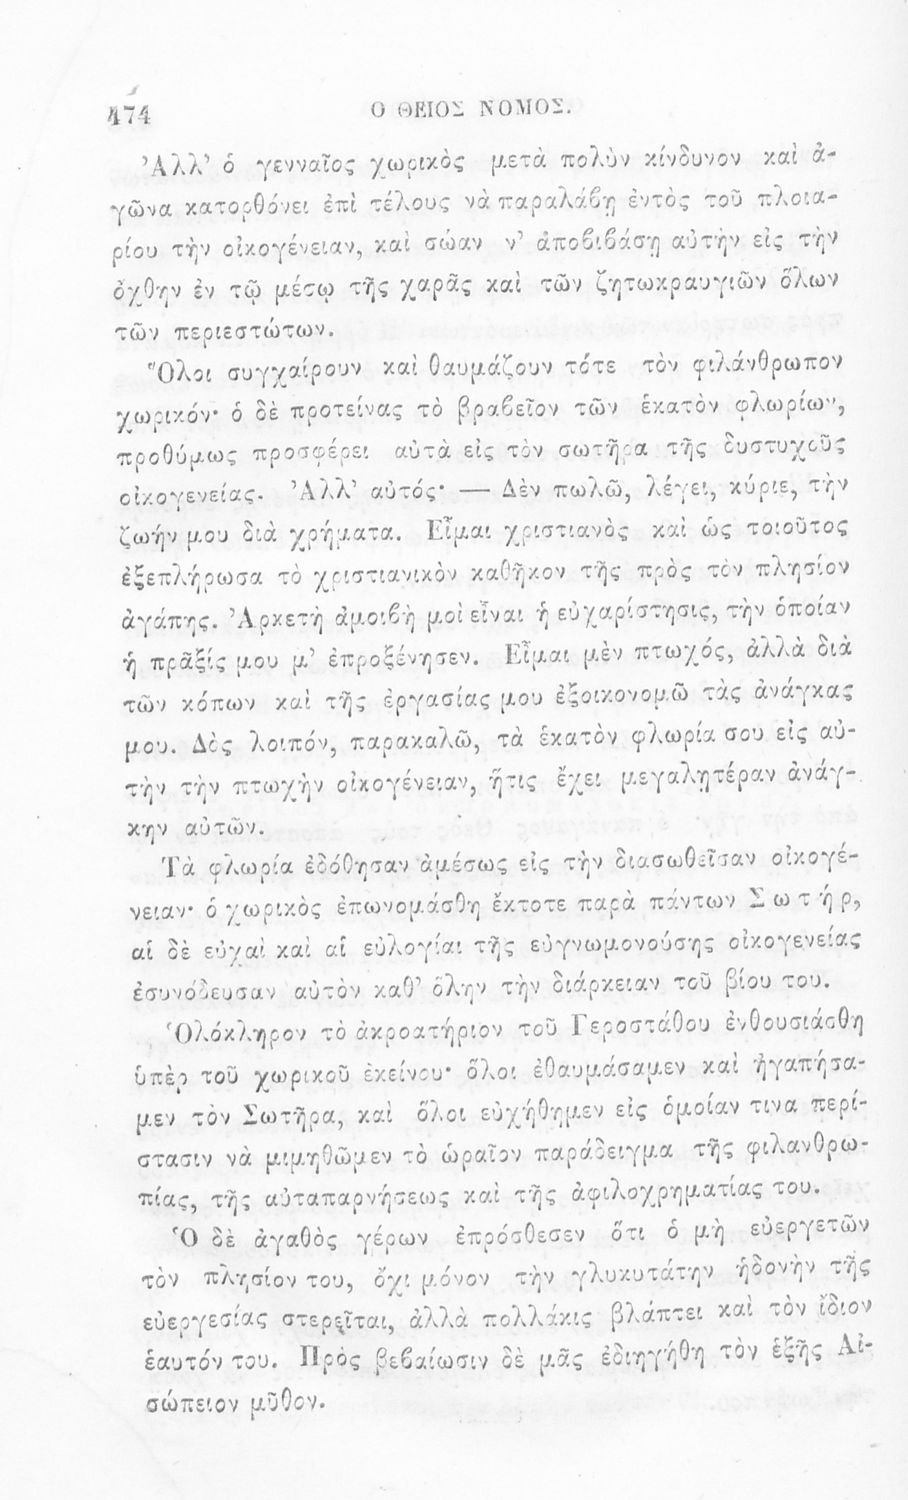 474
Ο ΘΕΙΟΣ ΝΟΜΟΣ.
Ἀλλ’ ὁ γενναῖος χωρικὸς μετὰ πολὺν κίνδυνον καὶ ἀ-
γῶνα κατορθόνει ἐπὶ τέλους νὰ παραλάβῃ ἐντὸς τοῦ πλοια-
ρίου τὴν οἰκογένειαν, καὶ σώαν ν’ ἀποβιβάσῃ αὐτὴν εἰς τὴν
ὄχθην ἐν τῷ μέσῳ τῆς χαρᾶς καὶ τῶν ζητωκραυγιῶν ὅλων
τῶν περιεστώτων.
Ὅλοι συγχαίρουν καὶ θαυμάζουν τότε τὸν φιλάνθρωπον
χωρικόν· ὁ δὲ προτείνας τὸ βραβεῖον τῶν ἑκατὸν φλωρίων,
προθύμως προσφέρει αὐτὰ εἰς τὸν σωτῆρα τῆς δυστυχοῦς
οἰκογενείας. Ἀλλ’ αὐτός· — Δὲν πωλῶ, λέγει, κύριε, τὴν
ζωήν μου διὰ χρήματα. Εἶμαι χριστιανὸς καὶ ὡς τοιοῦτος
ἐξεπλήρωσα τὸ χριστιανικὸν καθῆκον τῆς πρὸς τὸν πλησίον
ἀγάπης. Ἀρκετὴ ἀμοιβὴ μοὶ εἶναι ἡ εὐχαρίστησις, τὴν ὁποίαν
ἡ πρᾶξίς μου μ’ ἐπροξένησεν. Εἶμαι μὲν πτωχός, ἀλλὰ διὰ
τῶν κόπων καὶ τῆς ἐργασίας μου ἐξοικονομῶ τὰς ἀνάγκας
μου. Δὸς λοιπόν, παρακαλῶ, τὰ ἑκατὸν φλωρία σου εἰς αὐ-
τὴν τὴν πτωχὴν οἰκογένειαν, ἥτις ἔχει μεγαλητέραν ἀνάγ-
κην αὐτῶν.
Τὰ φλωρία ἐδόθησαν ἀμέσως εἰς τὴν διασωθεῖσαν οἰκογέ-
νειαν· ὁ χωρικὸς ἐπωνομάσθη ἔκτοτε παρὰ πάντων Σ ω τ ή ρ,
αἱ δὲ εὐχαὶ καὶ αἱ εὐλογίαι τῆς εὐγνωμονούσης οἰκογενείας
ἐσυνόδευσαν αὐτὸν καθ’ ὅλην τὴν διάρκειαν τοῦ βίου του.
Ὁλόκληρον τὸ ἀκροατήριον τοῦ Γεροστάθου ἐνθουσιάσθη
ὑπὲρ τοῦ χωρικοῦ ἐκείνου· ὅλοι ἐθαυμάσαμεν καὶ ἠγαπήσα-
μεν τὸν Σωτῆρα, καὶ ὅλοι εὐχήθημεν εἰς ὁμοίαν τινα περί-
στασιν νὰ μιμηθῶμεν τὸ ὡραῖον παράδειγμα τῆς φιλανθρω-
πίας, τῆς αὐταπαρνήσεως καὶ τῆς ἀφιλοχρηματίας του.
Ὁ δὲ ἀγαθὸς γέρων ἐπρόσθεσεν ὅτι ὁ μὴ εὐεργετῶν
τὸν πλησίον του, ὄχι μόνον τὴν γλυκυτάτην ἡδονὴν τῆς
εὐεργεσίας στερεῖται, ἀλλὰ πολλάκις βλάπτει καὶ τὸν ἴδιον
ἑαυτόν του. Πρὸς βεβαίωσιν δὲ μᾶς ἐδιηγήθη τὸν ἑξῆς Αἰ-
σώπειον μῦθον.